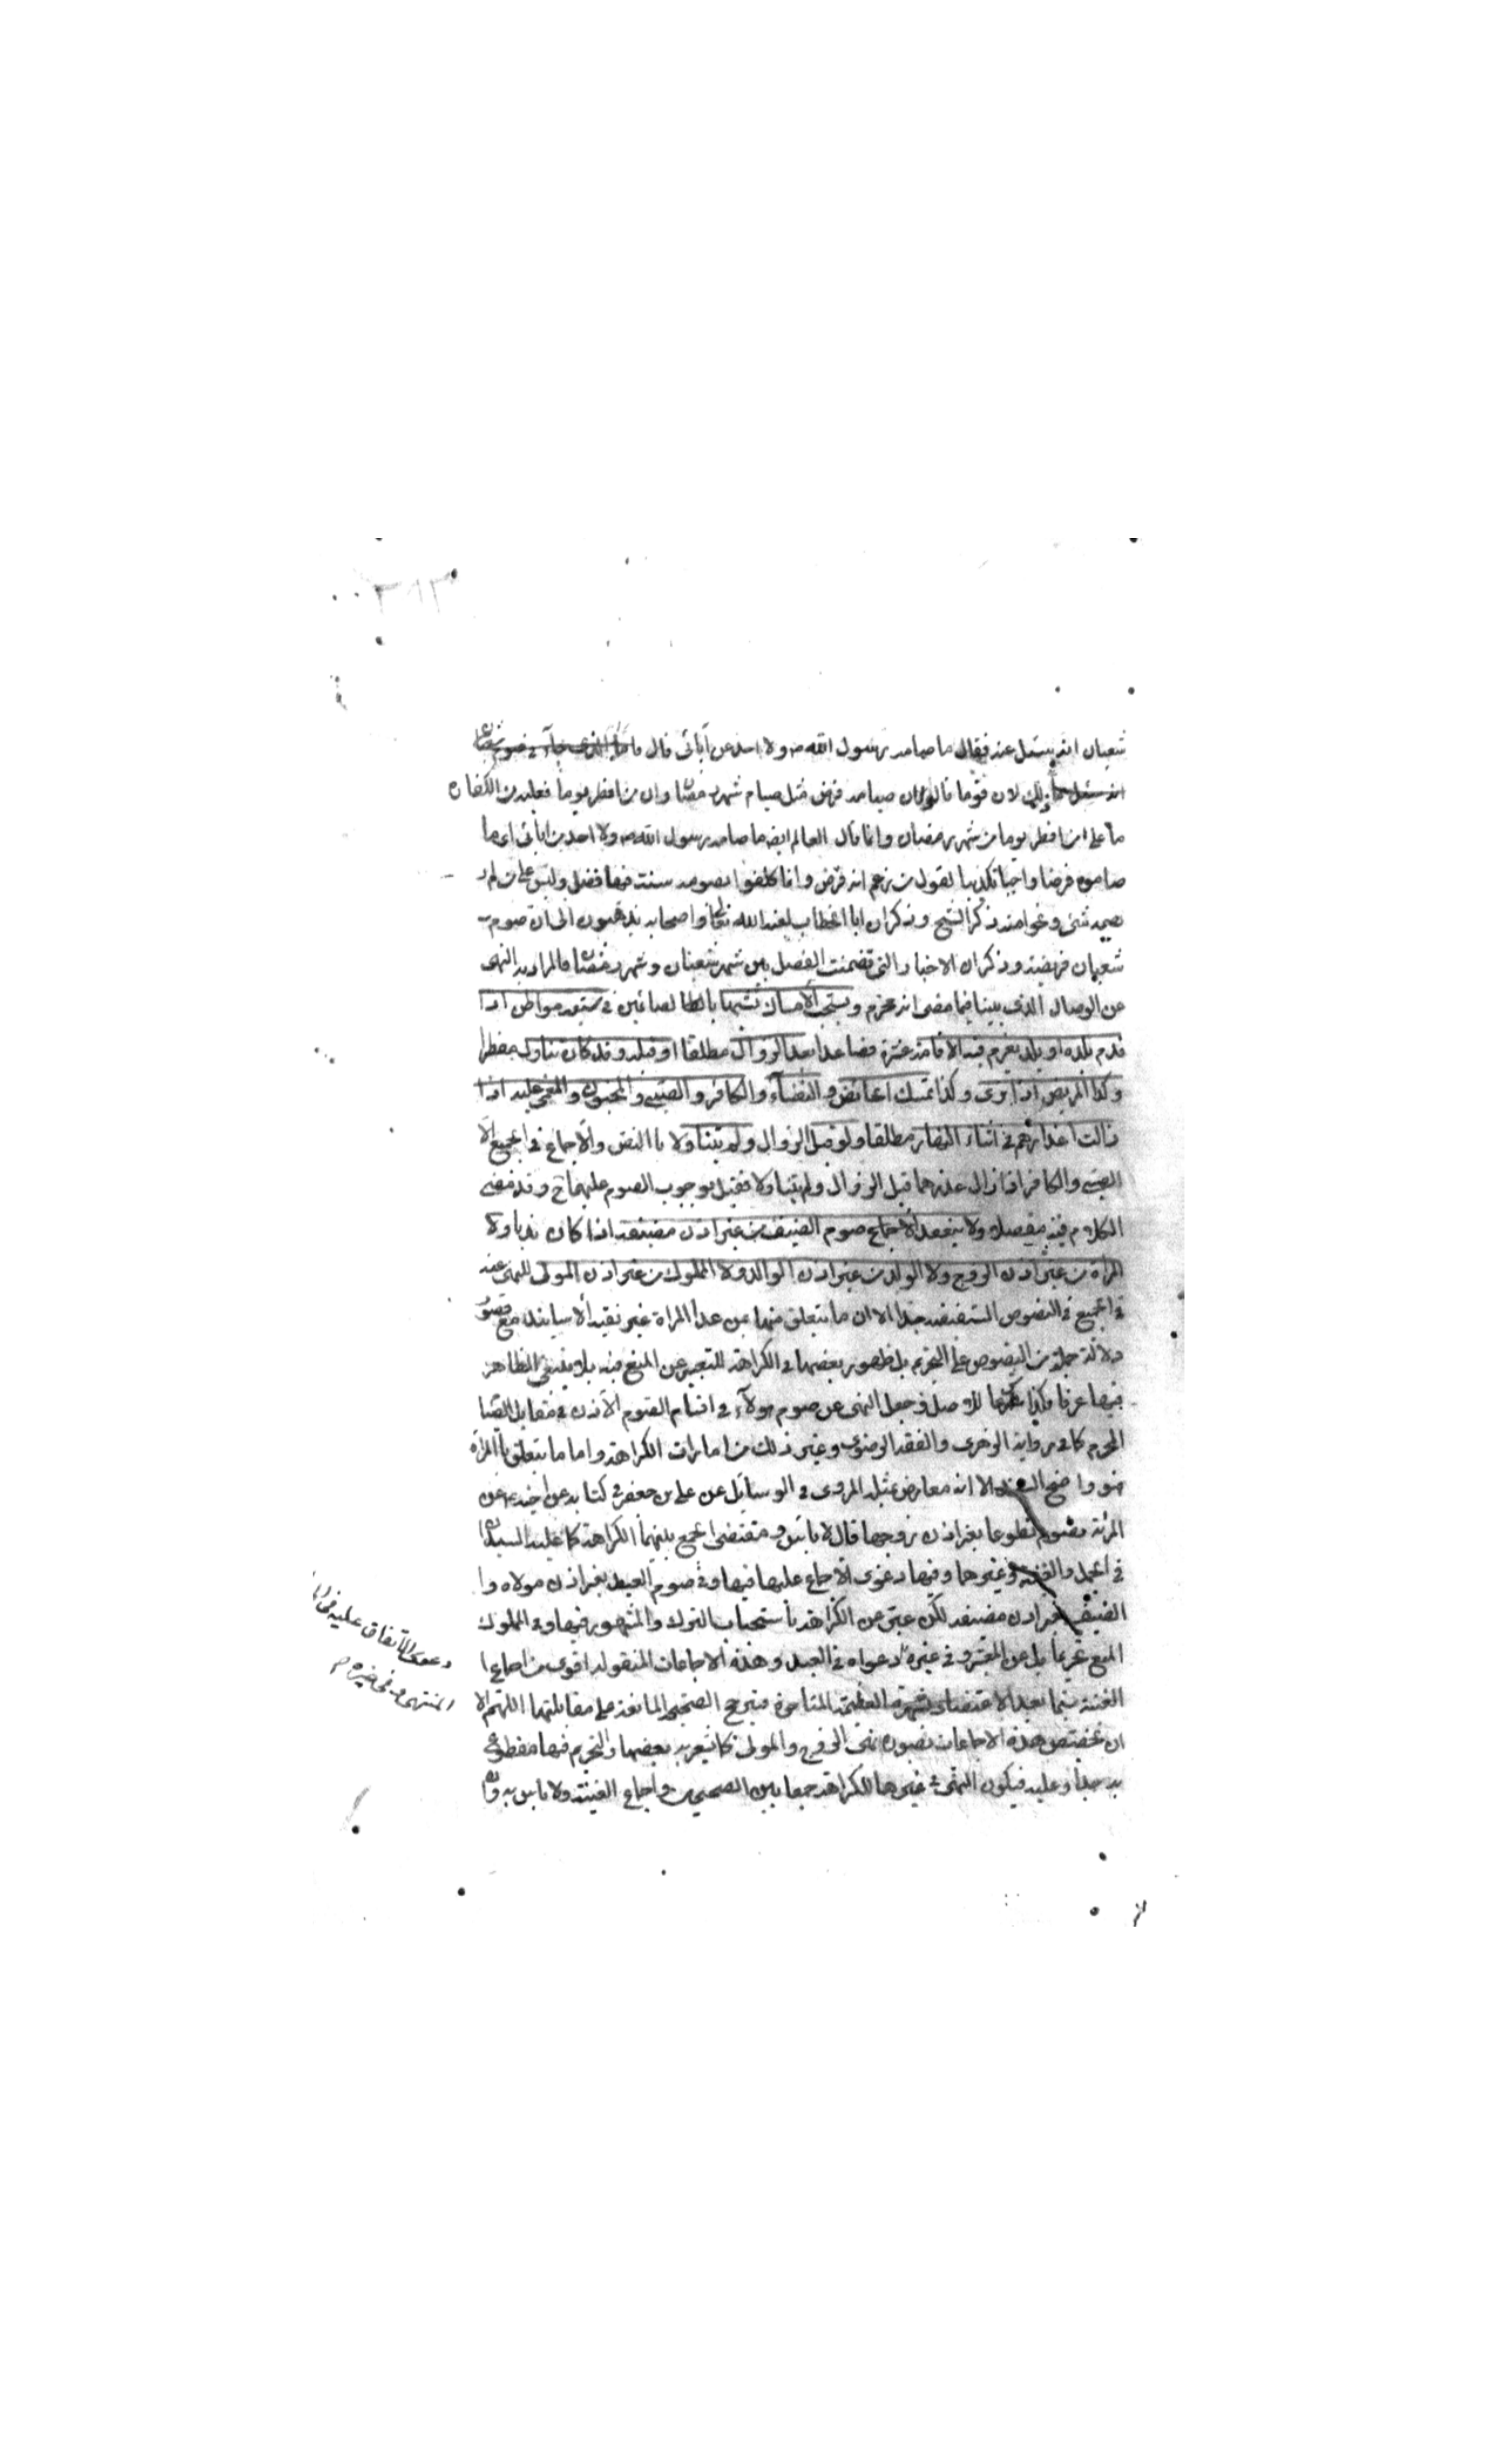 شعبان انه سئل عنه فقال ما صامه رسول الله ص ولا احد من آبائى قال
ذلك لان قوما قالوا ان صيامه فرض مثل صيام شهر رمضان وان من افطر يوما فعليه من الكفارة
ما على من افطر يوما من شهر رمضان وانما قال العالم ايضا ما صامه رسول الله ص ولا احد من ابائى اى ما
صاموه فرضا واجبا تكذيبا لقول من زعم انه فرض وانما كلفوا بصومه سنة فيها فضل وليس على من لم
يصمه شئ ونحوا منه ذكر الشيخ وذكر ان ابا الخطاب لعنه الله تعالى واصحابه يذهبون الى ان صوم
شعبان فريضة وذكر ان الاخبار التى تضمنت الفصل بين شهر شعبان وشهر رمضان فالمراد به النهى
عن الوصال الذى بينا فيما مضى انه محرم ويستحب الامساك تشبها بالصائمين فى سبعة مواطن اذا
قدم بلده او بلد يعزم فيه الاقامة عشرة فصاعدا بعد الزوال مطلقا او قبله وقد كان تناول مفطرا
وكذا المريض اذا برئ وكذا تمسك الحائض والنفساء والكافر والصبى والمجنون والمغمى عليه اذا
زالت اعذارهم فى اثناء النهار مطلقا ولو قبل الزوال ولم يتناولا بالنص والاجماع فى الجميع الا
الصبى والكافر اذا زال عذرهما قبل الزوال ولم يتناولا فقيل بوجوب الصوم عليهما ح وقد مضى
الكلام فيه مفصلا ولا ينعقد صوم الضيف من غير اذن مضيفه اذا كان ندبا ولا
المراة من غير اذن الزوج ولا الولد من غير اذن الوالد ولا المملوك من غير اذن المولى للنهى عنه
فى الجميع فى النصوص المستفيضة جدا الا ان ما يتعلق منها بمن عدا المراة غير نقية الاسانيد مع قصور
دلالة جملة من النصوص على التحريم بل ظهور بعضها فى الكراهة للتعبير عن المنع فيه بلا ينبغى الظاهر
فيها عرفا وجعل النهى عن صوم هؤلاء فى اقسام الصوم الاذن فى مقابل الصيام
المحرم كما فى رواية الزهرى والفقه الرضوى وغير ذلك من امارات الكراهة واما ما يتعلق بالمراة
فهو واضح الا انه معارض بمثله المروى فى الوسائل عن على بن جعفر فى كتابه عن اخيه ع عن
المرئة تصوم تطوعا بغير اذن زوجها قال لا باس ومقتضى الجمع بينهما الكراهة كما عليه السيدان
فى الجمل والغنية وغيرهما وفيها دعوى الاجماع عليها فيها وفى صوم العبد بغير اذن مولاه وا
الضيف بغير اذن مضيفه لكن عبر عن الكراهة باستحباب الترك والمشهور فيها وفى المملوك
المنع تحريما بل عن المعتبر وفى غيره دعواه فى العبد وهذه الاجماعات المنقولة اقوى من اجماع
الغنية سيما بعد الاعتضاد بالشهرة العظيمة المتاخرة فيترجح الصحيح المانعة على مقابلتها اللهم الا
ان تختص هذه الاجماعات بصورة نهى الزوج والمولى كما يشعر به بعضها والتحريم فيها مقطوع
به جدا وعليه فيكون النهى فى غيرها للكراهة جمعا بين الصحيحين واجماع الغنية ولا باس به
دعوى الاتفاق عليه
المنتهى وفى غيره م